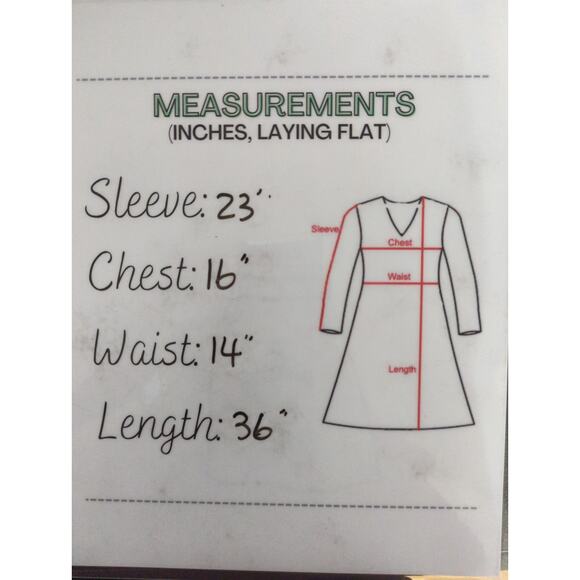 MEASUREMENTS
(INCHES, LAYING FLAT)
Sleeve: 23"
Chest: 16"
Waist: 14"
Length: 36"
Sleeve
Chest
Waist
Length